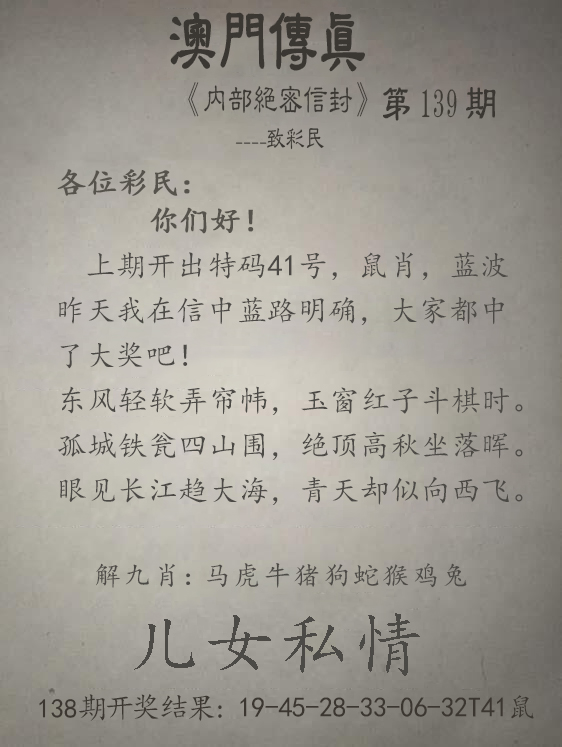 澳門傳眞
《内部絕密信封》第139期
----致彩民
各位彩民：
你们好！
上期开出特码41号，鼠肖，蓝波
昨天我在信中蓝路明确，大家都中
了大奖吧！
东风轻软弄帘帏，玉窗红子斗棋时。
孤城铁瓮四山围，绝顶高秋坐落晖。
眼见长江趋大海，青天却似向西飞。
解九肖：马虎牛猪狗蛇猴鸡兔
儿女私情
138期开奖结果：19-45-28-33-06-32T41鼠